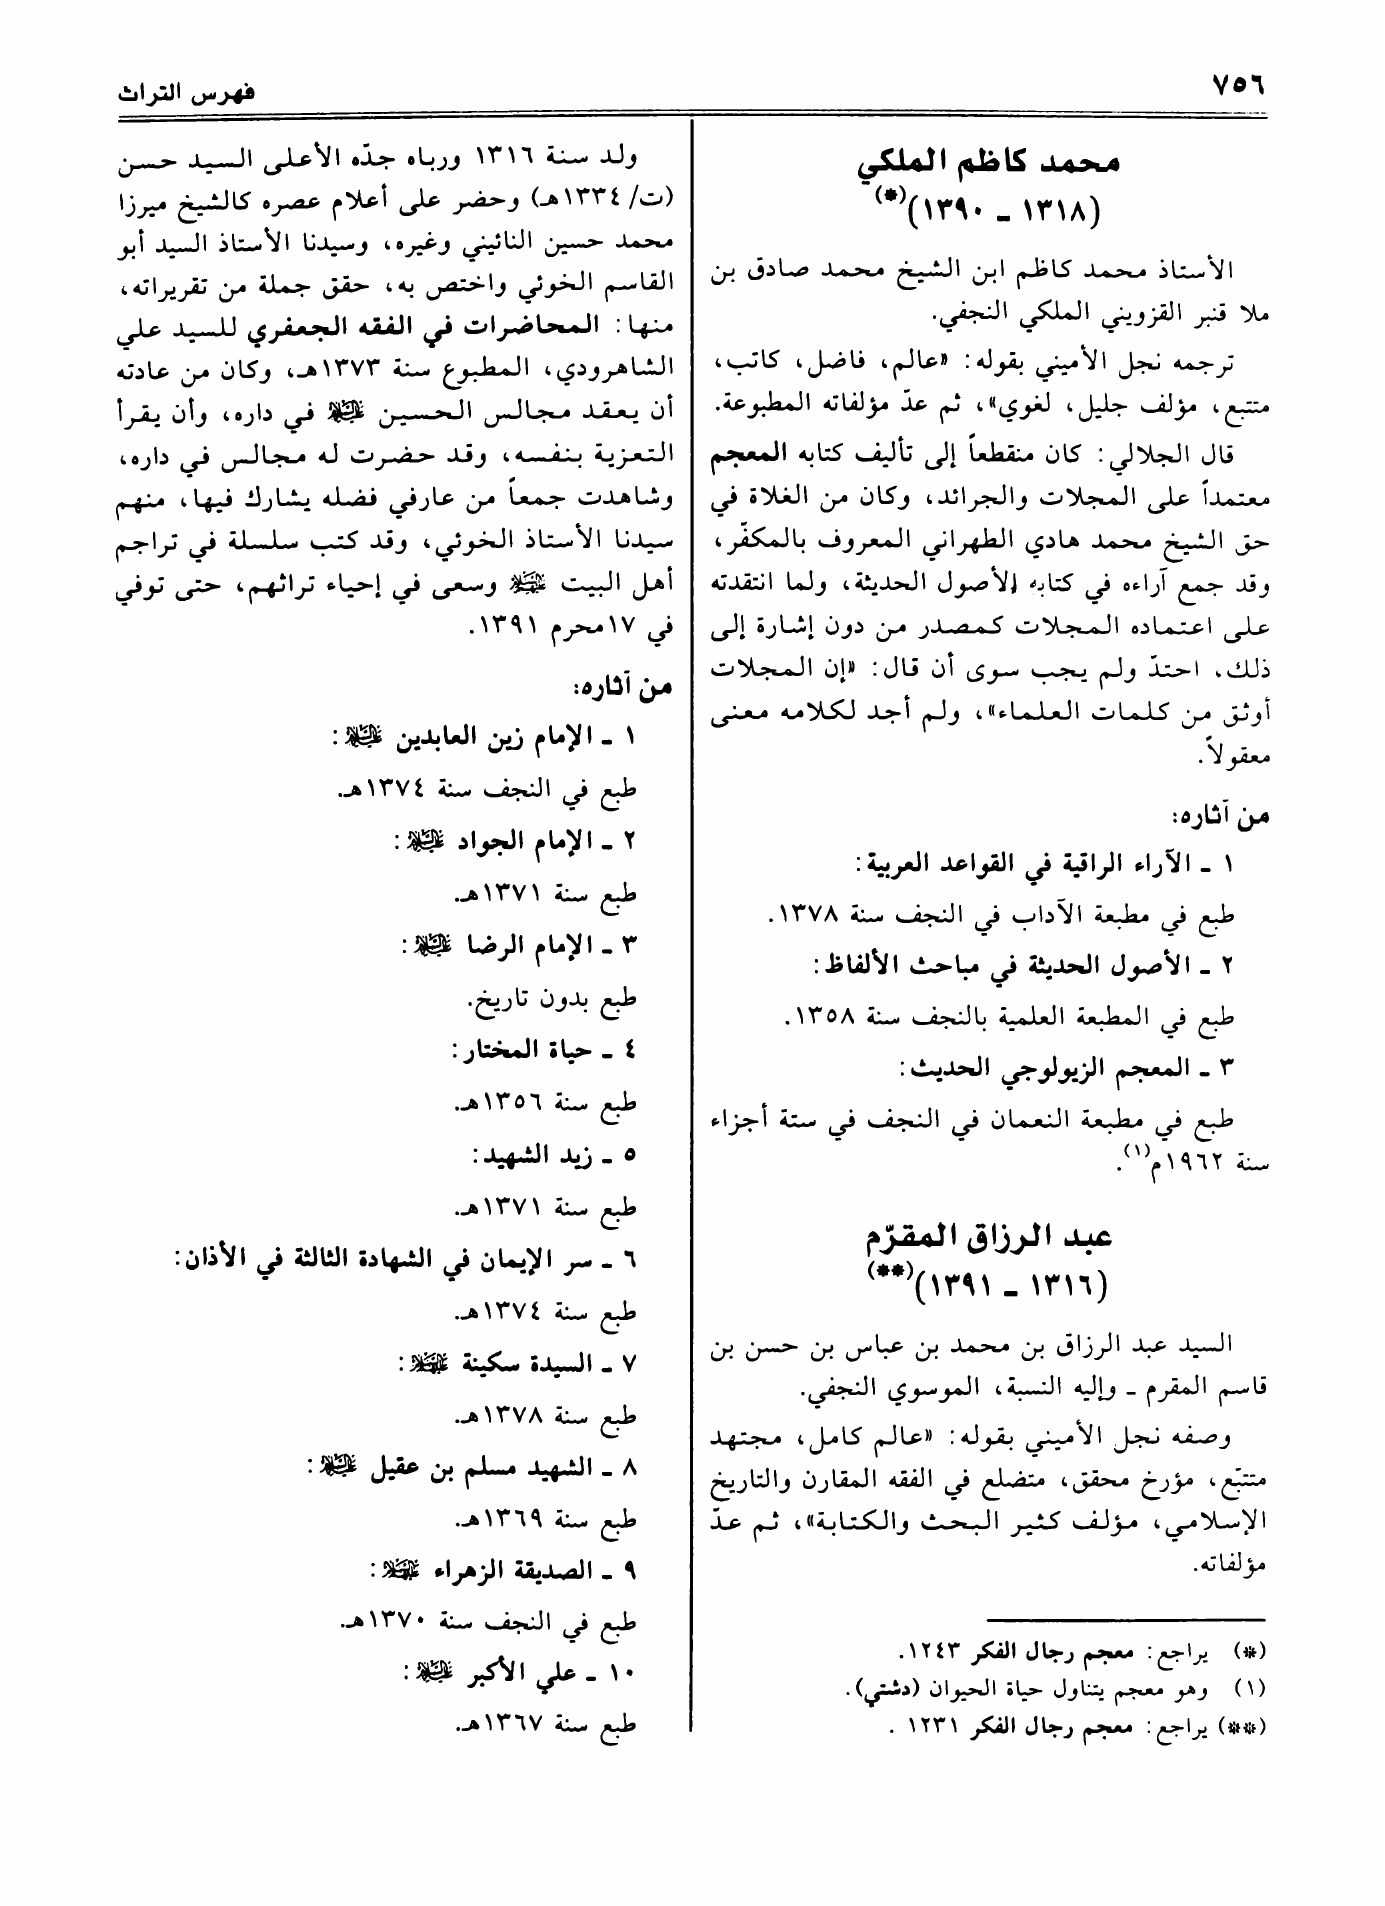 ٧٥٦
فهرس التراث
محمد كاظم الملكي
(١٣١٨ ـ ١٣٩٠)(*)
الأستاذ محمد كاظم ابن الشيخ محمد صادق بن
ملا قنبر القزويني الملكي النجفي.
ترجمه نجل الأميني بقوله: «عالم، فاضل، كاتب،
متتبع، مؤلف جليل، لغوي»، ثم عدّ مؤلفاته المطبوعة.
قال الجلالي: كان منقطعاً إلى تأليف كتابه المعجم
معتمداً على المجلات والجرائد، وكان من الغلاة في
حق الشيخ محمد هادي الطهراني المعروف بالمكفّر،
وقد جمع آراءه في كتابه الأصول الحديثة، ولما انتقدته
على اعتماده المجلات كمصدر من دون إشارة إلى
ذلك، احتدّ ولم يجب سوى أن قال: «إن المجلات
أوثق من كلمات العلماء»، ولم أجد لكلامه معنى
معقولاً.
من آثاره:
١ ـ الآراء الراقية في القواعد العربية:
طبع في مطبعة الآداب في النجف سنة ١٣٧٨.
٢ ـ الأصول الحديثة في مباحث الألفاظ:
طبع في المطبعة العلمية بالنجف سنة ١٣٥٨.
٣ ـ المعجم الزيولوجي الحديث:
طبع في مطبعة النعمان في النجف في ستة أجزاء
سنة ١٩٦٢م(١).
عبد الرزاق المقرّم
(١٣١٦ ـ ١٣٩١)(**)
السيد عبد الرزاق بن محمد بن عباس بن حسن بن
قاسم المقرم ـ وإليه النسبة، الموسوي النجفي.
وصفه نجل الأميني بقوله: «عالم كامل، مجتهد
متتبّع، مؤرخ محقق، متضلع في الفقه المقارن والتاريخ
الإسلامي، مؤلف كثير البحث والكتابة»، ثم عدّ
مؤلفاته.
(*) يراجع: معجم رجال الفكر ١٢٤٣.
(١) وهو معجم يتناول حياة الحيوان (دشتي).
(**) يراجع: معجم رجال الفكر ١٢٣١ .
ولد سنة ١٣١٦ ورباه جدّه الأعلى السيد حسن
(ت/ ١٣٣٤هـ) وحضر على أعلام عصره كالشيخ ميرزا
محمد حسين النائيني وغيره، وسيدنا الأستاذ السيد أبو
القاسم الخوئي واختص به، حقق جملة من تقريراته،
منها: المحاضرات في الفقه الجعفري للسيد علي
الشاهرودي، المطبوع سنة ١٣٧٣هـ، وكان من عادته
أن يعقد مجالس الحسين عليه السلام في داره، وأن يقرأ
التعزية بنفسه، وقد حضرت له مجالس في داره،
وشاهدت جمعاً من عارفي فضله يشارك فيها، منهم
سيدنا الأستاذ الخوئي، وقد كتب سلسلة في تراجم
أهل البيت عليهم السلام وسعى في إحياء تراثهم، حتى توفي
في ١٧محرم ١٣٩١.
من آثاره:
١ ـ الإمام زين العابدين عليه السلام:
طبع في النجف سنة ١٣٧٤هـ.
٢ ـ الإمام الجواد عليه السلام:
طبع سنة ١٣٧١هـ.
٣ ـ الإمام الرضا عليه السلام:
طبع بدون تاريخ.
٤ ـ حياة المختار:
طبع سنة ١٣٥٦هـ.
٥ ـ زيد الشهيد:
طبع سنة ١٣٧١هـ.
٦ ـ سر الإيمان في الشهادة الثالثة في الأذان:
طبع سنة ١٣٧٤هـ.
٧ ـ السيدة سكينة عليها السلام:
طبع سنة ١٣٧٨هـ.
٨ ـ الشهيد مسلم بن عقيل عليه السلام:
طبع سنة ١٣٦٩هـ.
٩ ـ الصديقة الزهراء عليها السلام:
طبع في النجف سنة ١٣٧٠هـ.
١٠ ـ علي الأكبر عليه السلام:
طبع سنة ١٣٦٧هـ.